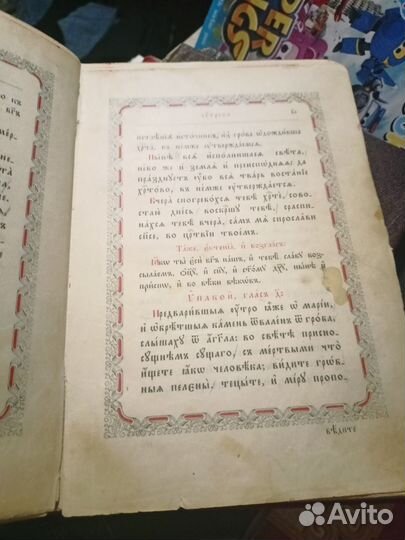 SUPER
тлѣнїѧ источникъ, и҆з̾ гро́ба ѡ҆дожди́вша
хрⷭ҇та̀, въ не́мже ᲂу҆твержда́емсѧ.
Ны́нѣ всѧ҄ и҆спо́лнишасѧ свѣ́та,
не́бо же и҆ землѧ̀ и҆ преиспѡ́днѧѧ: да
пра́зднꙋетъ ᲂу҆́бо всѧ̀ тва́рь воста́нїе
хрⷭ҇то́во, въ не́мже ᲂу҆твержда́етсѧ.
Вчера̀ спогребо́хсѧ тебѣ̀ хрⷭ҇тѐ, сово-
стаю̀ дне́сь воскре́сшꙋ тебѣ̀, сраспи-
на́хсѧ тебѣ̀ вчера̀, са́мъ мѧ̀ спросла́ви
сп҃се, во црⷭ҇твїи твое́мъ.
Та́же, є҆ктенїѧ̀ и҆ во́згласъ:
Ꙗ҆́кѡ ты̀ є҆сѝ бг҃ъ на́шъ, и҆ тебѣ̀ сла́вꙋ воз-
сыла́емъ, ѻ҆ц҃ꙋ̀, и҆ сн҃ꙋ, и҆ ст҃о́мꙋ дх҃ꙋ, ны́нѣ и҆
при́снѡ, и҆ во вѣ́ки вѣкѡ́въ.
Ѵ҆пакоѝ, гла́съ д҃:
Предвари́вшыѧ ᲂу҆́тро ꙗ҆̀же ѡ҆ марі́и,
и҆ ѡ҆брѣ́тшыѧ ка́мень ѿвале́нъ ѿ гро́ба,
слы́шахꙋ ѿ а҆́гг҃ла: во свѣ́тѣ присно-
сꙋ́щнѣмъ сꙋ́щаго, съ ме́ртвыми что̀
и҆́щете ꙗ҆́кѡ человѣ́ка; ви́дите грѡ́б-
ныѧ пелены̀, тецы́те, и҆ мі́рꙋ пропо-
вѣ́дите
Avito